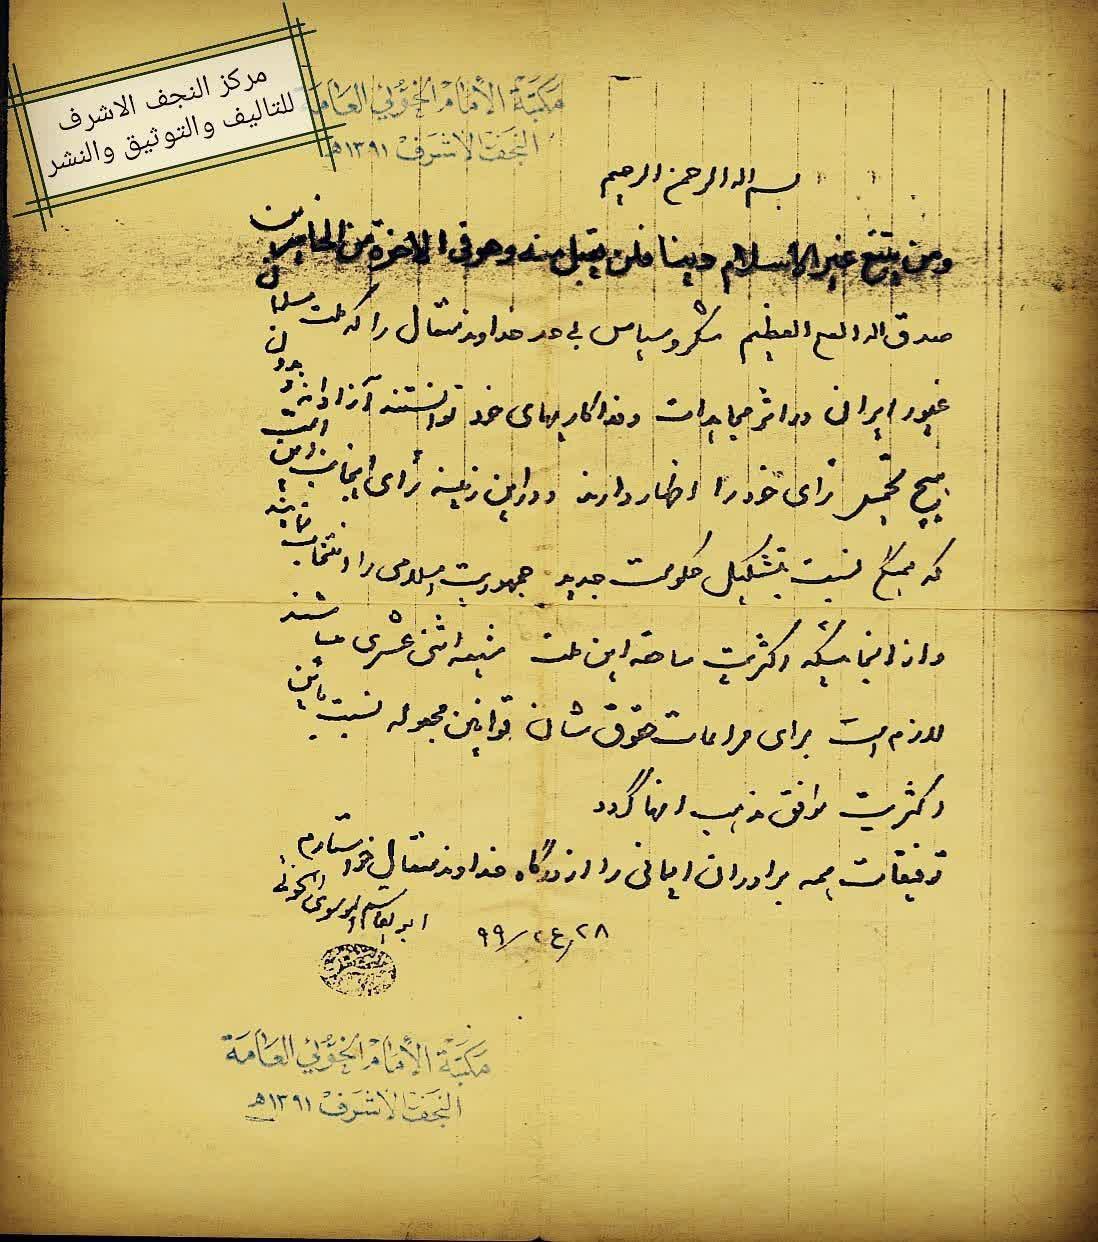 مركز النجف الاشرف
للتاليف والتوثيق والنشر
مكتبة الأمام الخوئي العامة
النجف الاشرف ١٣٩١هـ
بسم الله الرحمن الرحیم
ومن یبتغ غیر الاسلام دینا فلن یقبل منه وهو فی الاخرة من الخاسرین
صدق الله العلی العظیم شکر و سپاس بی حد خداوند متعال را که ملت مسلمان
غیور ایران در اثر مجاهدات و فداکاریهای خود توانستند آزادانه و بدون
هیچ تحمیل رأی خود را اظهار دارند و در این زمینه رأی اینجانب این است
که همگی نسبت بتشکیل حکومت جدید جمهوریت اسلامی را انتخاب نمایند
و از آنجائیکه اکثریت ساحقه این ملت شیعه اثنی عشری میباشند
لازم است برای مراعات حقوق شان قوانین مجعوله نسبت باین
اکثریت موافق مذهب آنها گردد
توفیقات همه برادران ایمانی را از درگاه خداوند متعال خواستارم
ابوالقاسم الموسوی الخوئی
٢٨/ع٢/٩٩
مكتبة الأمام الخوئي العامة
النجف الاشرف ١٣٩١هـ